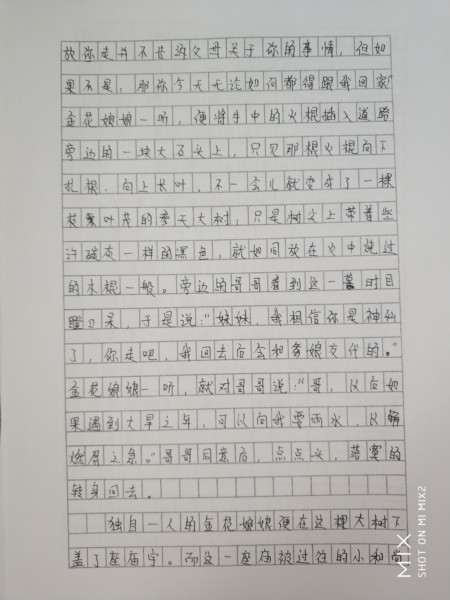 放你走并不告诉父母关于你的事情，但如
果不是，那你今天无论如何都得跟我回家"
金花娘娘一听，便将手中的火棍插入道路
旁边的一块大石头上，只见那根火棍向下
扎根，向上长叶，不一会儿就变成了一棵
枝繁叶茂的参天大树，只是树尖上带着些
许碳灰一样的黑色，就如同放在火中烧过
的木棍一般。旁边的哥哥看到这一幕时目
瞪口呆，于是说："妹妹，我相信你是神仙
了，你走吧，我回去后会和爹娘交代的。"
金花娘娘一听，就对哥哥说："哥，以后如
果遇到大旱之年，可以向我要雨水，以解
燃眉之急。"哥哥同意后，点点头，落寞的
转身回去。
独自一人的金花娘娘便在这棵大树下
盖了座庙宇。而这一座庙被过往的小和尚
MIX
SHOT ON MI MIX2